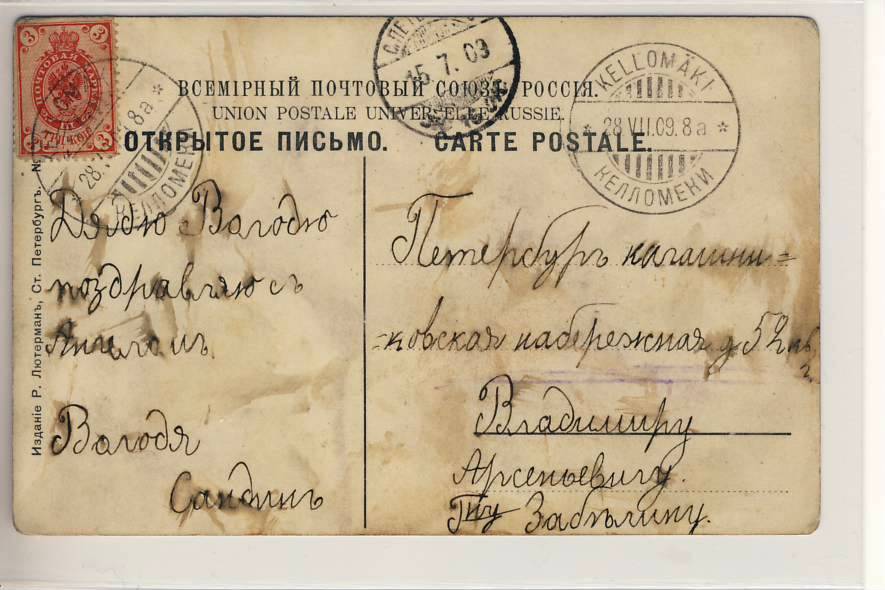 ВСЕМІРНЫЙ ПОЧТОВЫЙ СОЮЗЪ РОССІЯ.
UNION POSTALE UNIVERSELLE RUSSIE.
ОТКРЫТОЕ ПИСЬМО. CARTE POSTALE.
3 3
ПОЧТОВАЯ МАРКА
3 3
28. 8a
КЕЛЛОМЕКИ
С.ПЕТ
15.7.09
KELLOMÄKI
28.VII.09.8a
КЕЛЛОМЕКИ
Изданіе Р. Лютерманъ, Ст. Петербургъ. №
Дядю Валодю
поздравляю съ
Ангеломъ
Валодя
Сандинъ
Петербургъ калашни=
=ковская набережная д 52 кв
Владимиру
Арсеньевичу.
Гну Забѣлину.